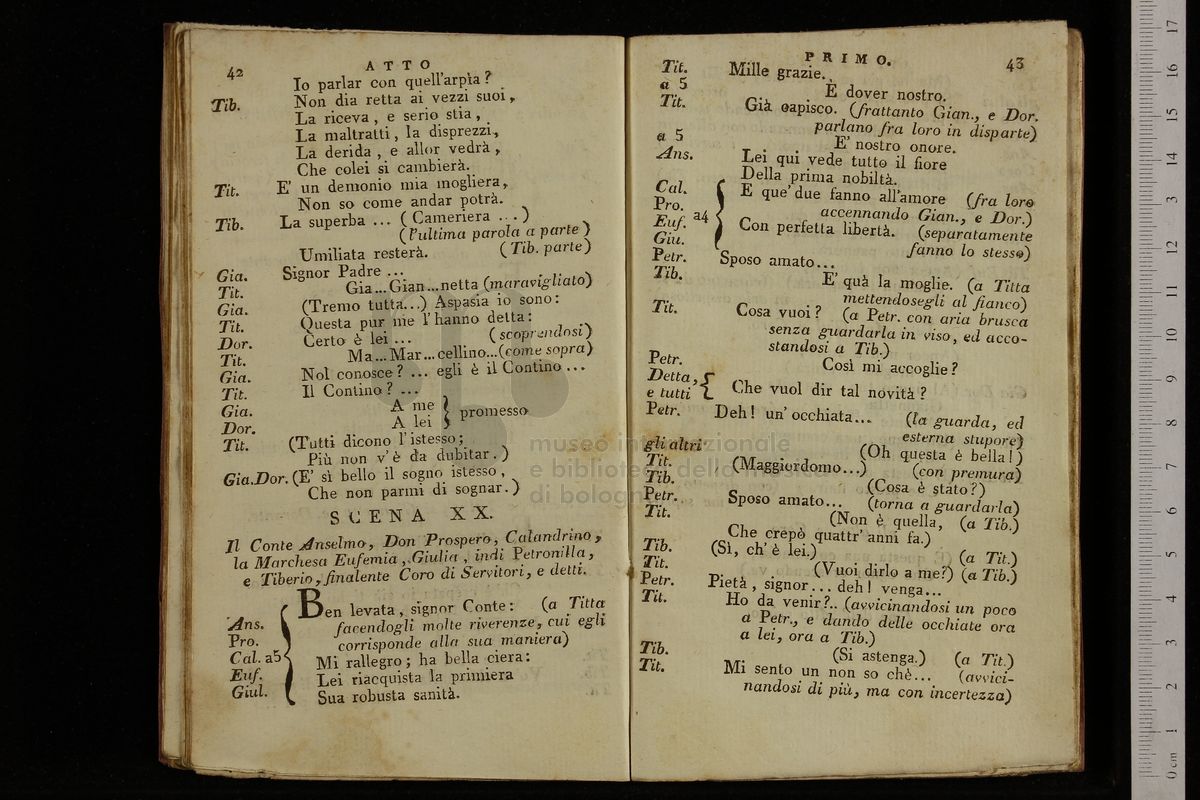 42
ATTO
Io parlar con quell'arpìa?
Tib. Non dia retta ai vezzi suoi,
La riceva, e serio stia,
La maltratti, la disprezzi,
La derida, e allor vedrà,
Che colei si cambierà.
Tit. E' un demonio mia mogliera,
Non so come andar potrà.
Tib. La superba ... (Cameriera ...)
(l'ultima parola a parte)
Umiliata resterà. (Tib. parte)
Gia. Signor Padre ...
Tit. Gia...Gian...netta (maravigliato)
Gia. (Tremo tutta...) Aspasia io sono:
Tit. Questa pur me l'hanno detta:
Dor. Certo è lei ... (scoprendosi)
Tit. Ma...Mar...cellino...(come sopra)
Gia. Nol conosce? ... egli è il Contino ...
Tit. Il Contino? ...
Gia. A me
Dor. A lei } promesso
Tit. (Tutti dicono l'istesso;
Più non v'è da dubitar.)
Gia.Dor. (E' sì bello il sogno istesso,
Che non parmi di sognar.)
SCENA XX.
Il Conte Anselmo, Don Prospero, Calandrino,
la Marchesa Eufemia, Giulia, indi Petronilla,
e Tiberio, finalente Coro di Servitori, e detti.
Ben levata, signor Conte: (a Titta
Ans. facendogli molte riverenze, cui egli
Pro. corrisponde alla sua maniera)
Cal. a5 Mi rallegro; ha bella ciera:
Euf. Lei riacquista la primiera
Giul. Sua robusta sanità.
PRIMO.
43
Tit. Mille grazie.
a 5 È dover nostro.
Tit. Già capisco. (frattanto Gian., e Dor.
parlano fra loro in disparte)
a 5 E' nostro onore.
Ans. Lei qui vede tutto il fiore
Della prima nobiltà.
Cal. E que' due fanno all'amore (fra loro
Pro. accennando Gian., e Dor.)
Euf. a4 Con perfetta libertà. (separatamente
Giu. fanno lo stesso)
Petr. Sposo amato...
Tib. E' quà la moglie. (a Titta
mettendosegli al fianco)
Tit. Cosa vuoi? (a Petr. con aria brusca
senza guardarla in viso, ed acco-
standosi a Tib.)
Petr. Così mi accoglie?
Detta,
e tutti Che vuol dir tal novità?
Petr. Deh! un' occhiata... (la guarda, ed
esterna stupore)
gli altri (Oh questa è bella!)
Tit. (Maggiordomo...) (con premura)
Tib. (Cosa è stato?)
Petr. Sposo amato... (torna a guardarla)
Tit. (Non è quella, (a Tib.)
Che crepò quattr' anni fa.)
Tib. (Sì, ch'è lei.) (a Tit.)
Tit. (Vuoi dirlo a me?) (a Tib.)
Petr. Pietà, signor... deh! venga...
Tit. Ho da venir?.. (avvicinandosi un poco
a Petr., e dando delle occhiate ora
a lei, ora a Tib.)
Tib. (Si astenga.) (a Tit.)
Tit. Mi sento un non so chè... (avvici-
nandosi di più, ma con incertezza)